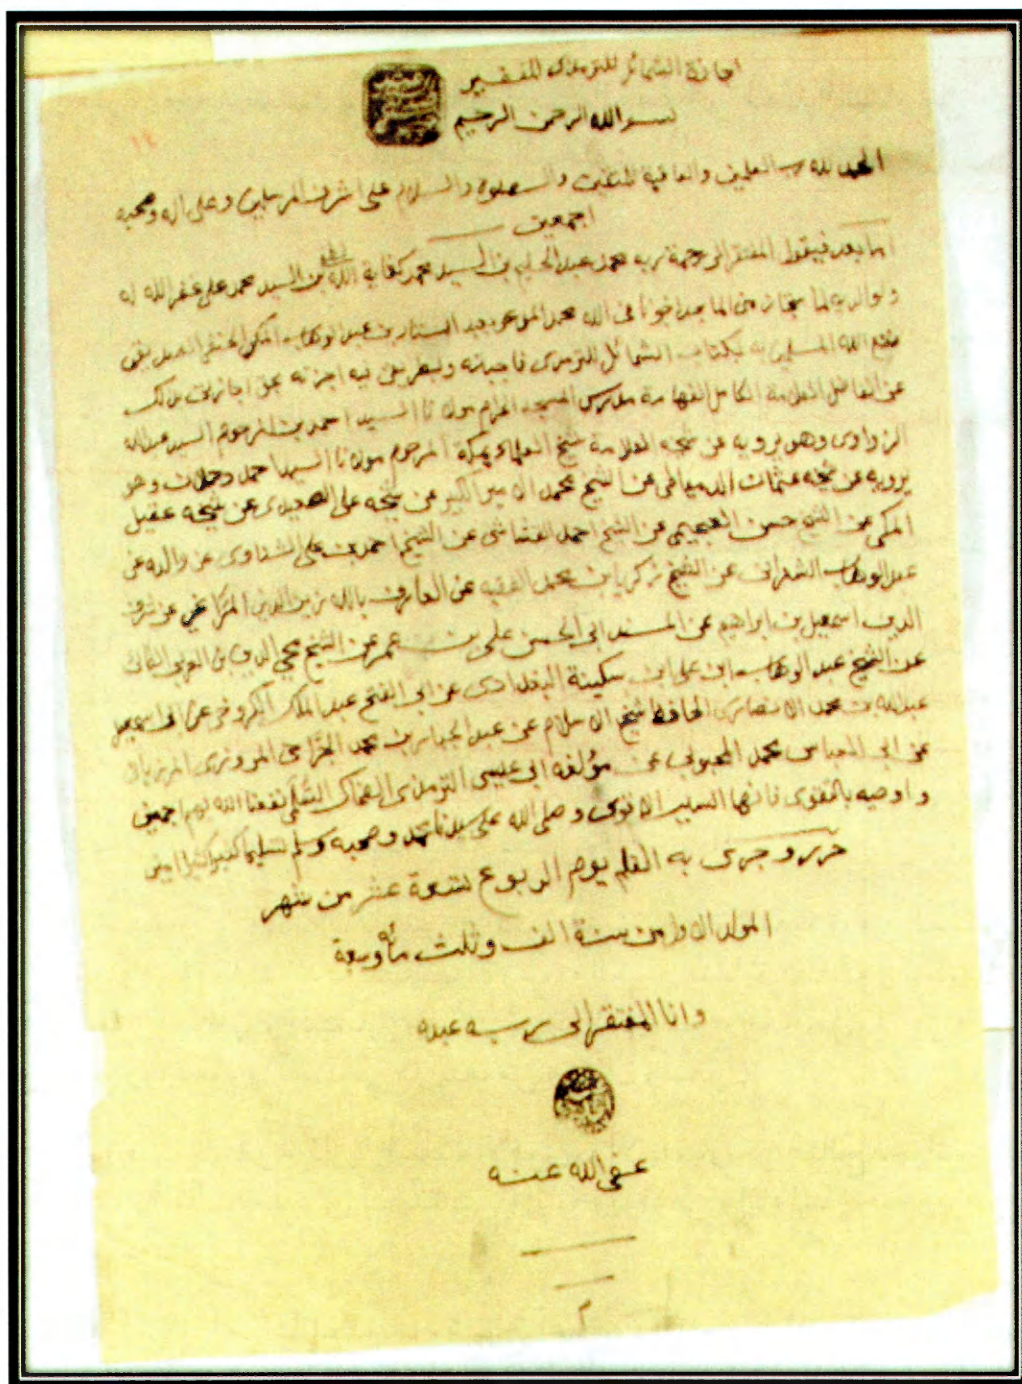 اجازة الشمائل للترمذي للفقير
بسم الله الرحمن الرحيم
١٤
الحمد لله رب العلمين والعاقبة للمتقين والصلوة والسلام على اشرف المرسلين وعلى اله وصحبه
اجمعين
اما بعد فيقول المفتقر الى رحمة ربه محمد عبد الحليم بن السيد محمد كفاية الله بن السيد محمد علي غفر الله له
ولوالديه لما الماجد اخونا في الله محمد عبد الستار بن عبد الوهاب المكي الحنفي الصديقي
نفع الله المسلمين به بكتاب الشمائل الترمذي فاجبته وبطريق فيه اجزته بحق اجازتي بذلك
عن الفاضل العلامة الكامل الفهامة مدرس المسجد الحرام مولانا السيد احمد بن المرحوم السيد عبد الله
الزواوى وهو يرويه عن شيخه العلامة شيخ العلماء بمكة المرحوم مولانا السيد احمد دحلان وهو
يرويه عن شيخه عثمان الدمياطي عن الشيخ محمد الامير الكبير عن شيخه علي الصعيدي عن شيخه عقيل
المكي عن الشيخ حسن العجيمي عن الشيخ احمد القشاشي عن الشيخ احمد بن علي الشناوى عن والده عن
عبد الوهاب الشعراني عن الشيخ زكريا بن محمد الفقيه عن العارف بالله زين الدين المراغي عن شرف
الدين اسمعيل بن ابراهيم عن المسند ابي الحسن علي بن عمر عن الشيخ محي الدين بن العربي الطائي
عن الشيخ عبد الوهاب ابن علي ابن سكينة البغدادى عن ابي الفتح عبد الملك الكروخي عن ابي اسمعيل
عبد الله بن محمد الانصارى الحافظ شيخ الاسلام عن عبد الجبار بن محمد الجرّاحي المروزى المرزباني
عن ابي العباس محمد المحبوبي عن مؤلفه ابي عيسى الترمذى الضحاك السُّلَمي نفعنا الله بهم اجمعين
واوصيه بالتقوى فانها السبب الاقوى وصلى الله على سيدنا محمد وصحبه وسلم تسليما كثيرا كثيرا امين
حرر وجرى به القلم يوم الربوع تسعة عشر من شهر
المولد الاول من سنة الف وثلث مائة وسبعة
وانا المفتقر الى ربه عبده
عفى الله عنه
م